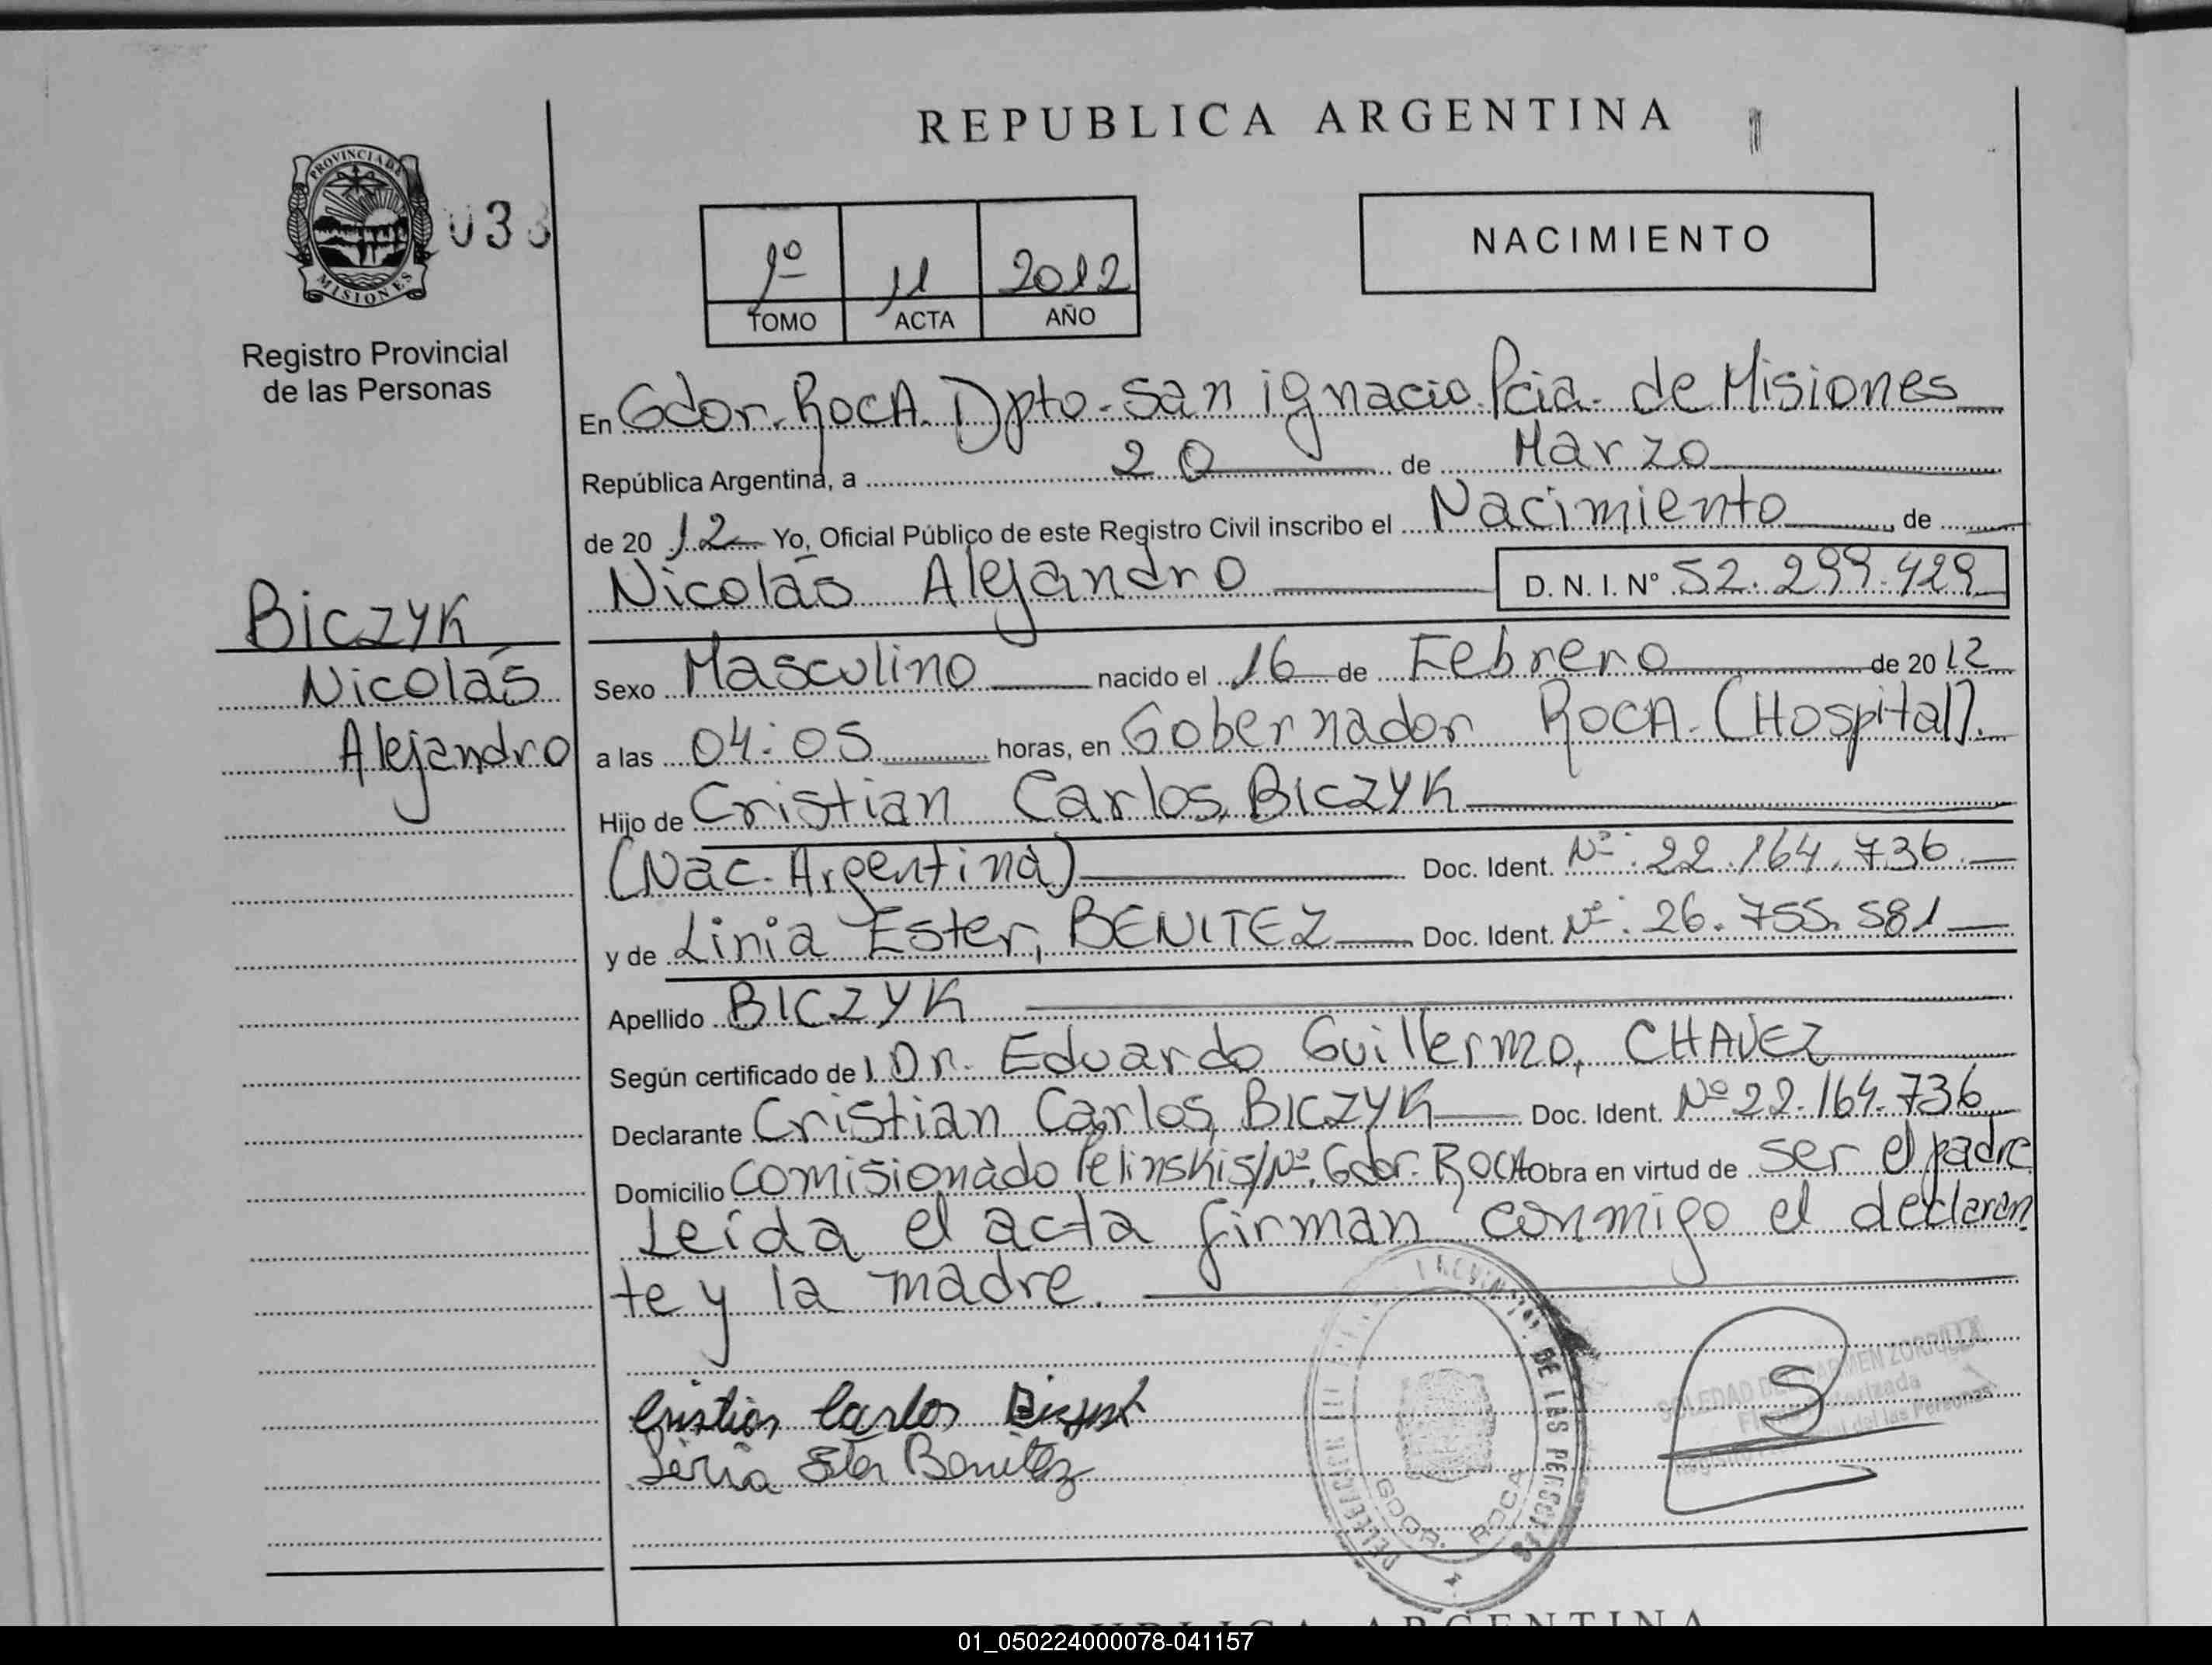 REPUBLICA ARGENTINA
PROVINCIA DE
MISIONES
033
Registro Provincial
de las Personas
1º 11 2012
TOMO ACTA AÑO
NACIMIENTO
En Gdor. Roca. Dpto. San ignacio Pcia. de Misiones
República Argentina, a 20 de Marzo
de 20 12 Yo, Oficial Público de este Registro Civil inscribo el Nacimiento, de
Nicolás Alejandro D. N. I. Nº 52.299.429
Biczyk
Nicolás
Alejandro
Sexo Masculino nacido el 16 de Febrero de 20 12
a las 04:05 horas, en Gobernador Roca. (Hospital).
Hijo de Cristian Carlos, Biczyk
(Nac. Argentina) Doc. Ident. Nº: 22.164.736.
y de Linia Ester, BENITEZ Doc. Ident. Nº: 26.755.581
Apellido BICZYK
Según certificado de l Dr. Eduardo Guillermo, CHAVEZ
Declarante Cristian Carlos, BICZYK Doc. Ident. Nº 22.164.736
Domicilio Comisionado Pelinski s/Nº. Gdor. Roca Obra en virtud de ser el padre
Leída el acta firman conmigo el declaran
te y la madre.
Cristian Carlos
Ester Benitez
DE LAS PERSONAS
GDOR. ROCA
SOLEDAD DEL CARMEN ZORRILLA
de las Personas
REPUBLICA ARGENTINA
01_050224000078-041157